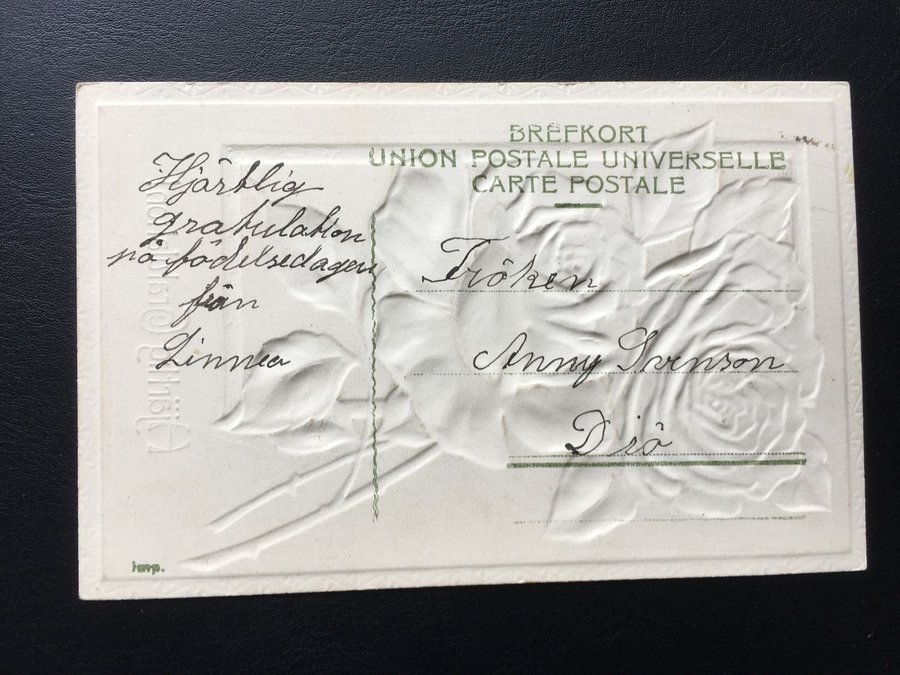 BREFKORT
UNION POSTALE UNIVERSELLE
CARTE POSTALE
Hjärtlig
gratulation
på födelsedagen
från
Linnea
Fröken
Anny Svenson
Diö
Imp.